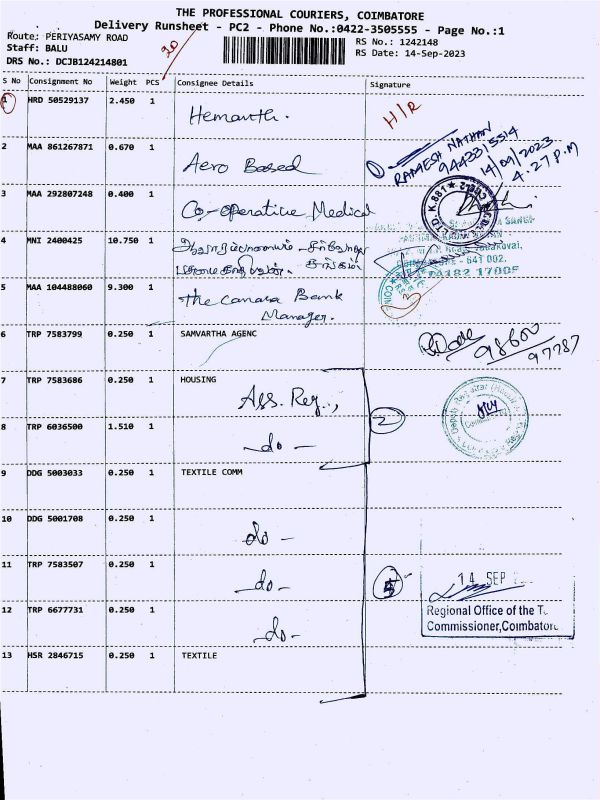 THE PROFESSIONAL COURIERS, COIMBATORE
Delivery Runsheet - PC2 - Phone No.:0422-3505555 - Page No.:1
Route: PERIYASAMY ROAD
RS No.: 1242148
Staff: BALU
RS Date: 14-Sep-2023
DRS No.: DCJB124214801
20
S No Consignment No Weight PCS Consignee Details Signature
1 HRD 50529137 2.450 1 Hemanth. H/R
2 MAA 861267871 0.670 1 Aero Based
RAMESH NATHAN
9443315514
14/09/2023
4.27 P.M
3 MAA 292807248 0.400 1 Co-operative Medical
4 MNI 2400425 10.750 1
641 002.
5 MAA 104488060 9.300 1 the canara Bank
Manager.
6 TRP 7583799 0.250 1 SAMVARTHA AGENC
98600
97787
7 TRP 7583686 0.250 1 HOUSING
Ass. Reg..,
2
8 TRP 6036500 1.510 1 -do-
9 DDG 5003033 0.250 1 TEXTILE COMM
10 DDG 5001708 0.250 1 do -
11 TRP 7583507 0.250 1 -do-
5
14 SEP
12 TRP 6677731 0.250 1 -do-
Regional Office of the
Commissioner,Coimbatore
13 HSR 2846715 0.250 1 TEXTILE